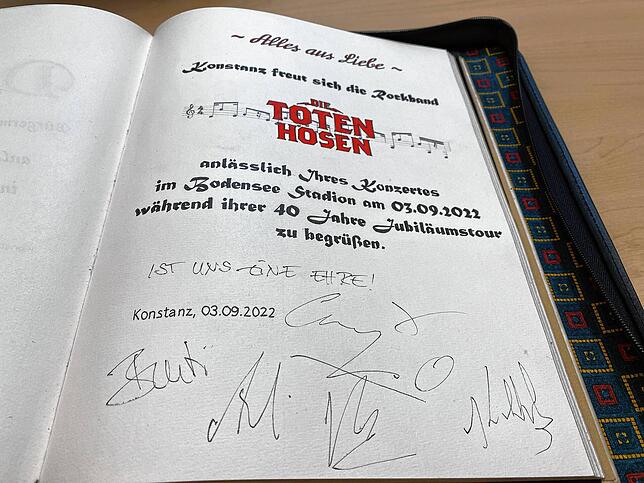 ~ Alles aus Liebe ~
Konstanz freut sich die Rockband
DIE
TOTEN
HOSEN
anlässlich Ihres Konzertes
im Bodensee Stadion am 03.09.2022
während ihrer 40 Jahre Jubiläumstour
zu begrüßen.
IST UNS EINE EHRE!
Konstanz, 03.09.2022